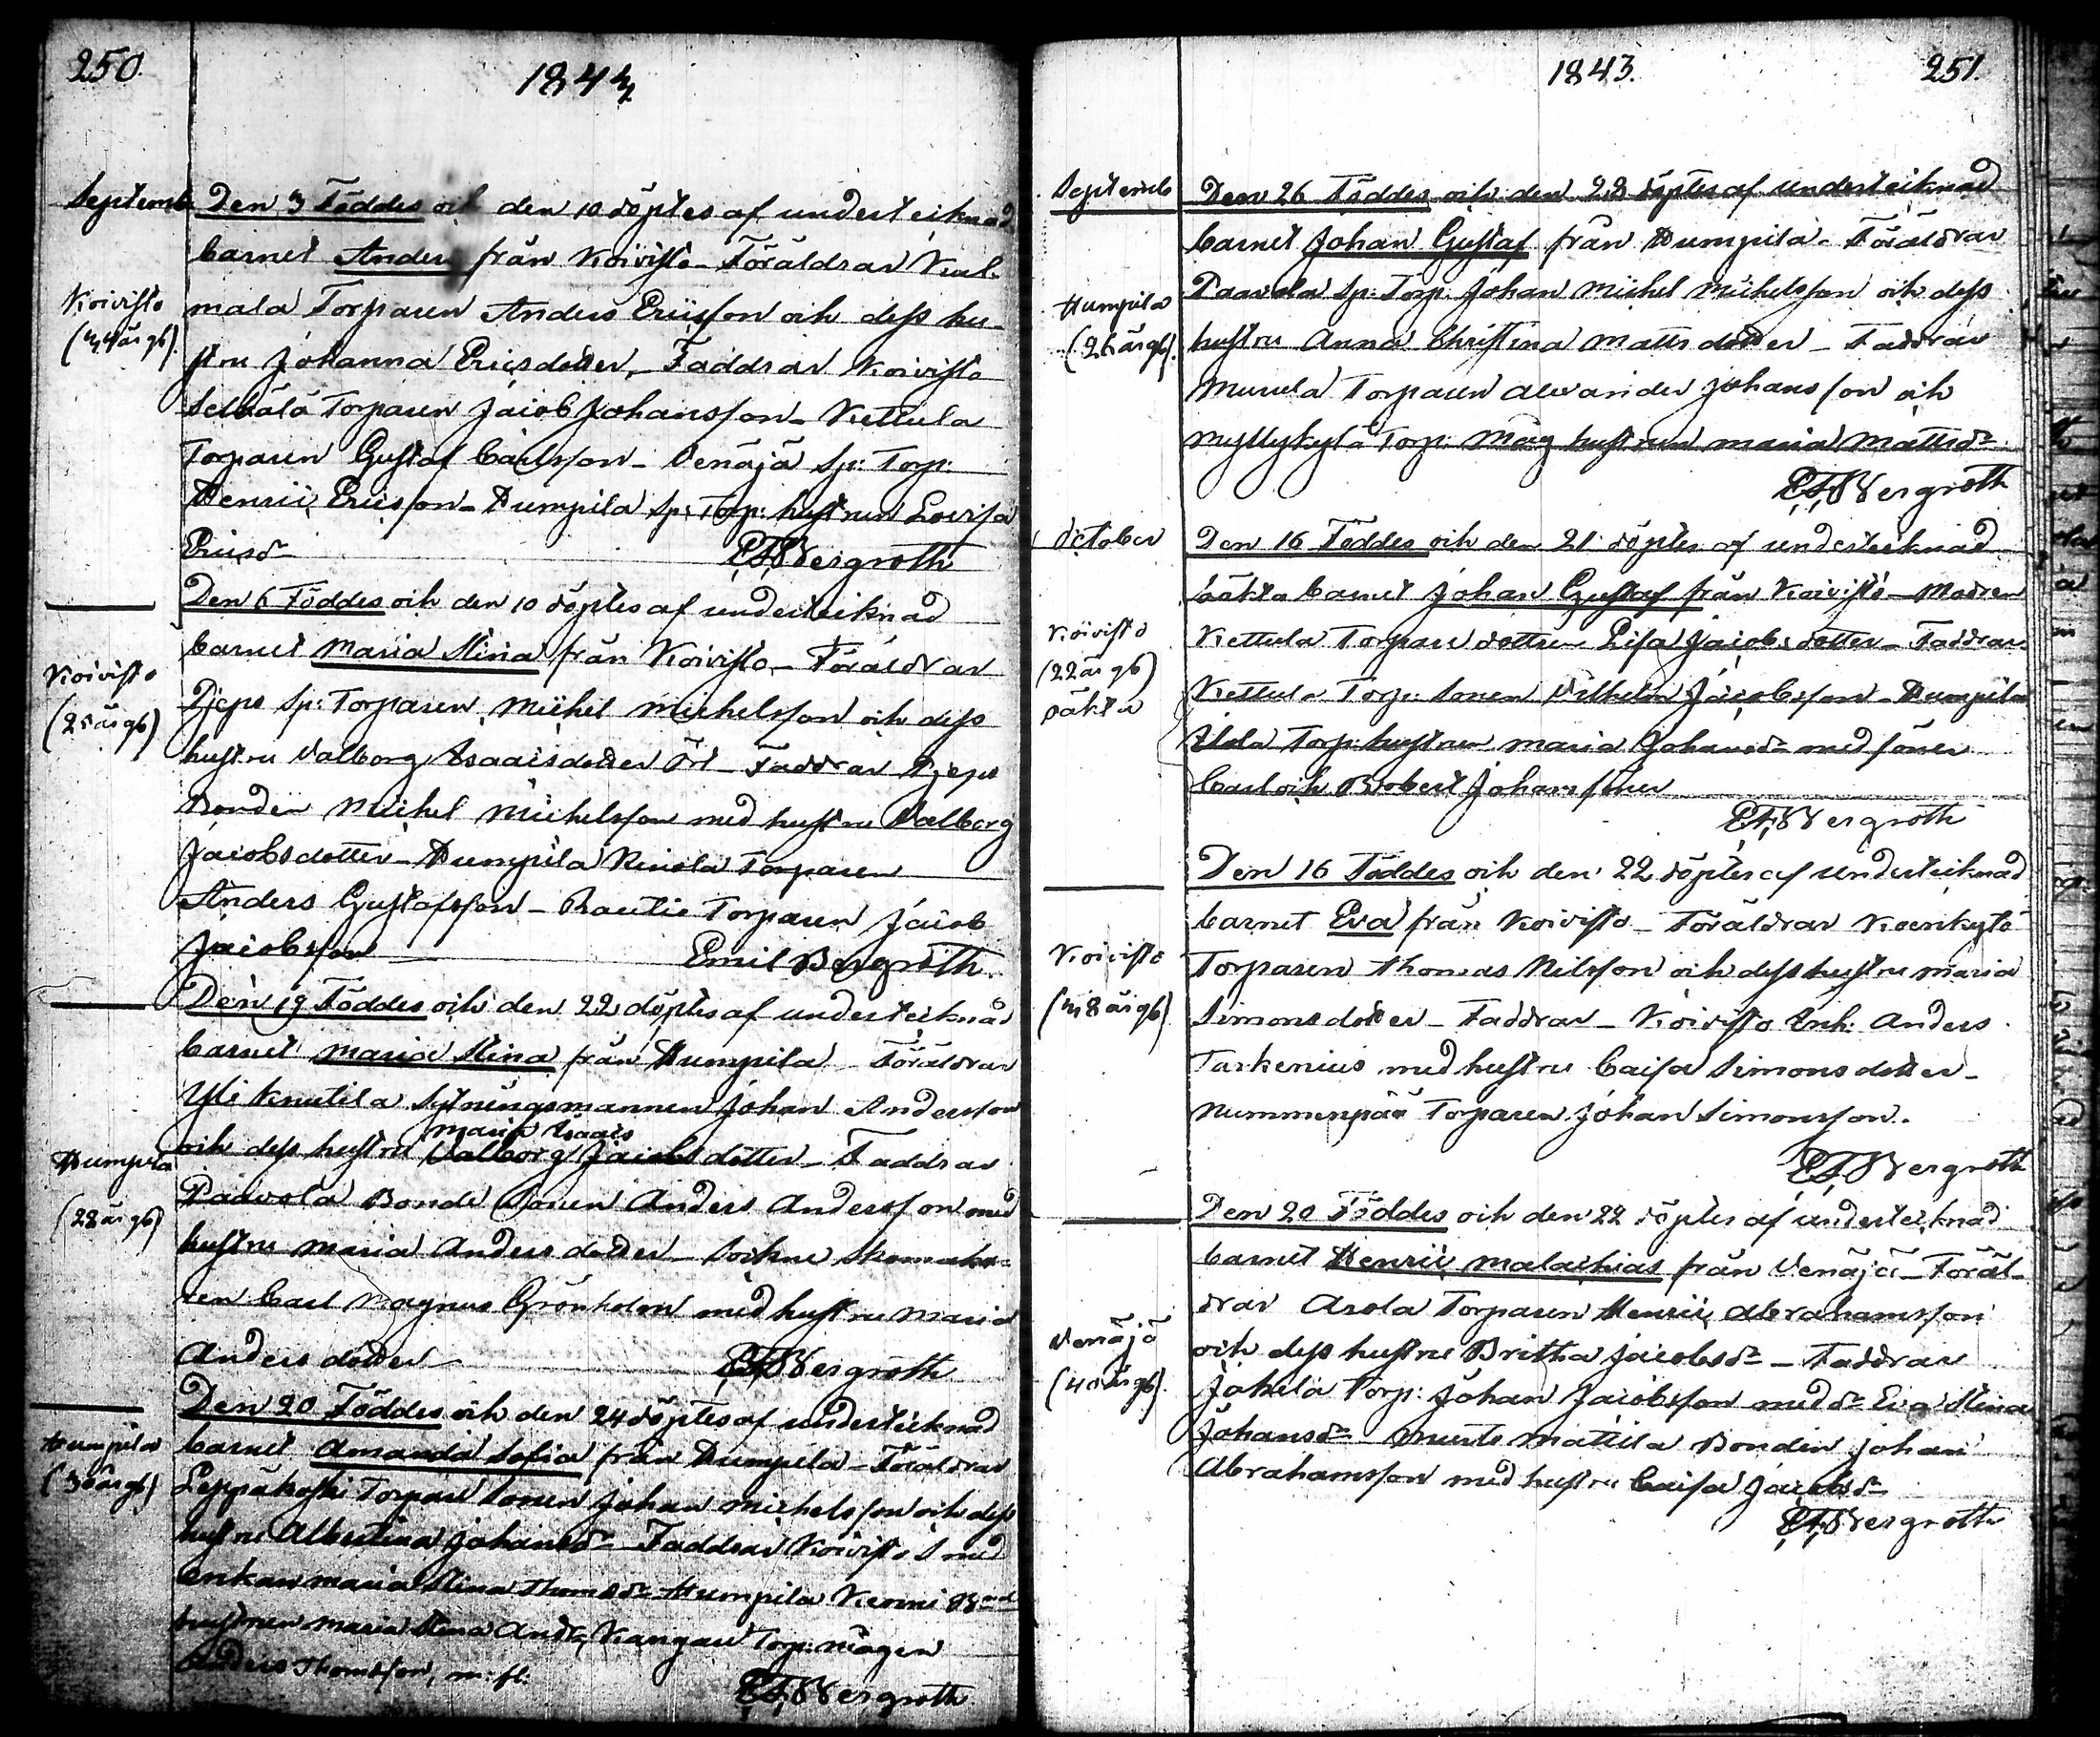 250.
1843
Septemb. Den 3 Föddes och den 10 döptes af undertecknad
barnet Anders från Koivisto - Föräldrar Kuul-
Koivisto
mala Torparen Anders Ericsson och dess hu-
(34 år gl).
stru Johanna Ericsdotter, - Faddrar Koivisto
Seikälä Torparen Jacob Johansson - Kettula
Torparen Gustaf Carlsson - Venäjä Sp: Torp:
Henric Ericsson - Humpila Sp: Torp: hustrun Lovisa
Ericsdr
E.F. Bergroth
Den 6 Föddes och den 10 döptes af undertecknad
barnet Maria Stina från Koivisto - Föräldrar
Koivisto
(25 år gl)
Pjeps Sp: Torparen Michel Michelsson och dess
hustru Valborg Isaacsdotter Öst - Faddrar Pjeps
Bonden Michel Michelsson med hustru Valborg
Jacobsdotter - Humpila Torparen
Anders Gustafsson - Rautio Torparen Jacob
Jacobsson
Emil Bergroth.
Den 19 Föddes och den 22 döptes af undertecknad
barnet Maria Stina från Humpila - Föräldrar
Yli Knutila Sytningsmannen Johan Andersson
Maria Isaacs
och dess hustru Valborg Jacobsdotter - Faddrar
Humpila
(28 år gl)
Paavola Bonde Sonen Anders Andersson med
hustru Maria Andersdotter - Sockne Skomaka-
ren Carl Magnus Grönholm med hustru Maria
Andersdotter
E.F. Bergroth
Den 20 Föddes och den 24 döptes af undertecknad
Humpila
barnet Amanda Sofia från Humpila - Föräldrar
(30 år gl)
Leppäkoski Torpare Sonen Johan Michelsson och dess
hustru Albertina Johansdr - Faddrar Koivisto Smed
enkan Maria Stina Thomasdr - Humpila
hustrun Maria Stina Andr, Kangari Torp: mågen
Anders Thomasson, m. fl.
E.F. Bergroth
1843.
251.
Septemb
Den 26 Föddes och den 28 döptes af undertecknad
barnet Johan Gustaf från Humpila - Föräldrar
Humpila
Paavola Sp: Torp: Johan Michel Michelsson och dess
(26 år gl).
hustru Anna Christina Mattsdotter - Faddrar
Murula Torparen Alexander Johansson och
Myllykylä Torp: Måg hustrun Maria Mattsdr
E.F. Bergroth
October
Den 16 Föddes och den 21 döptes af undertecknad
oäkta barnet Johan Gustaf från Koivisto - Modren
Koivisto
(22 år gl)
oäkta
Kettula Torpare dottren Lisa Jacobsdotter - Faddrar
Kettula Torp: Sonen Wilhelm Jacobsson - Humpila
Torp: hustrun Maria Johansdr med söner
Carl och Robert Johanssöner
E.F. Bergroth
Den 16 Föddes och den 22 döptes af undertecknad
barnet Eva från Koivisto - Föräldrar Koenkylä
Koivisto
(38 år gl)
Torparen Thomas Nilsson och dess hustru Maria
Simonsdotter - Faddrar - Koivisto Inh: Anders
Tarkenius med hustru Caisa Simonsdotter -
Nummenpää Torparen Johan Simonsson.
E.F. Bergroth
Den 20 Föddes och den 22 döptes af undertecknad
barnet Henric Malachias från Venäjä - Föräl-
drar Asola Torparen Henric Abrahamsson
Venäjä
(40 år gl).
och dess hustru Britha Jacobsdr - Faddrar
Jokela Torp: Johan Jacobsson med dr Eva Stina
Johansdr - Mattila Bonden Johan
Abrahamsson med hustru Caisa Jacobsdr
E.F. Bergroth